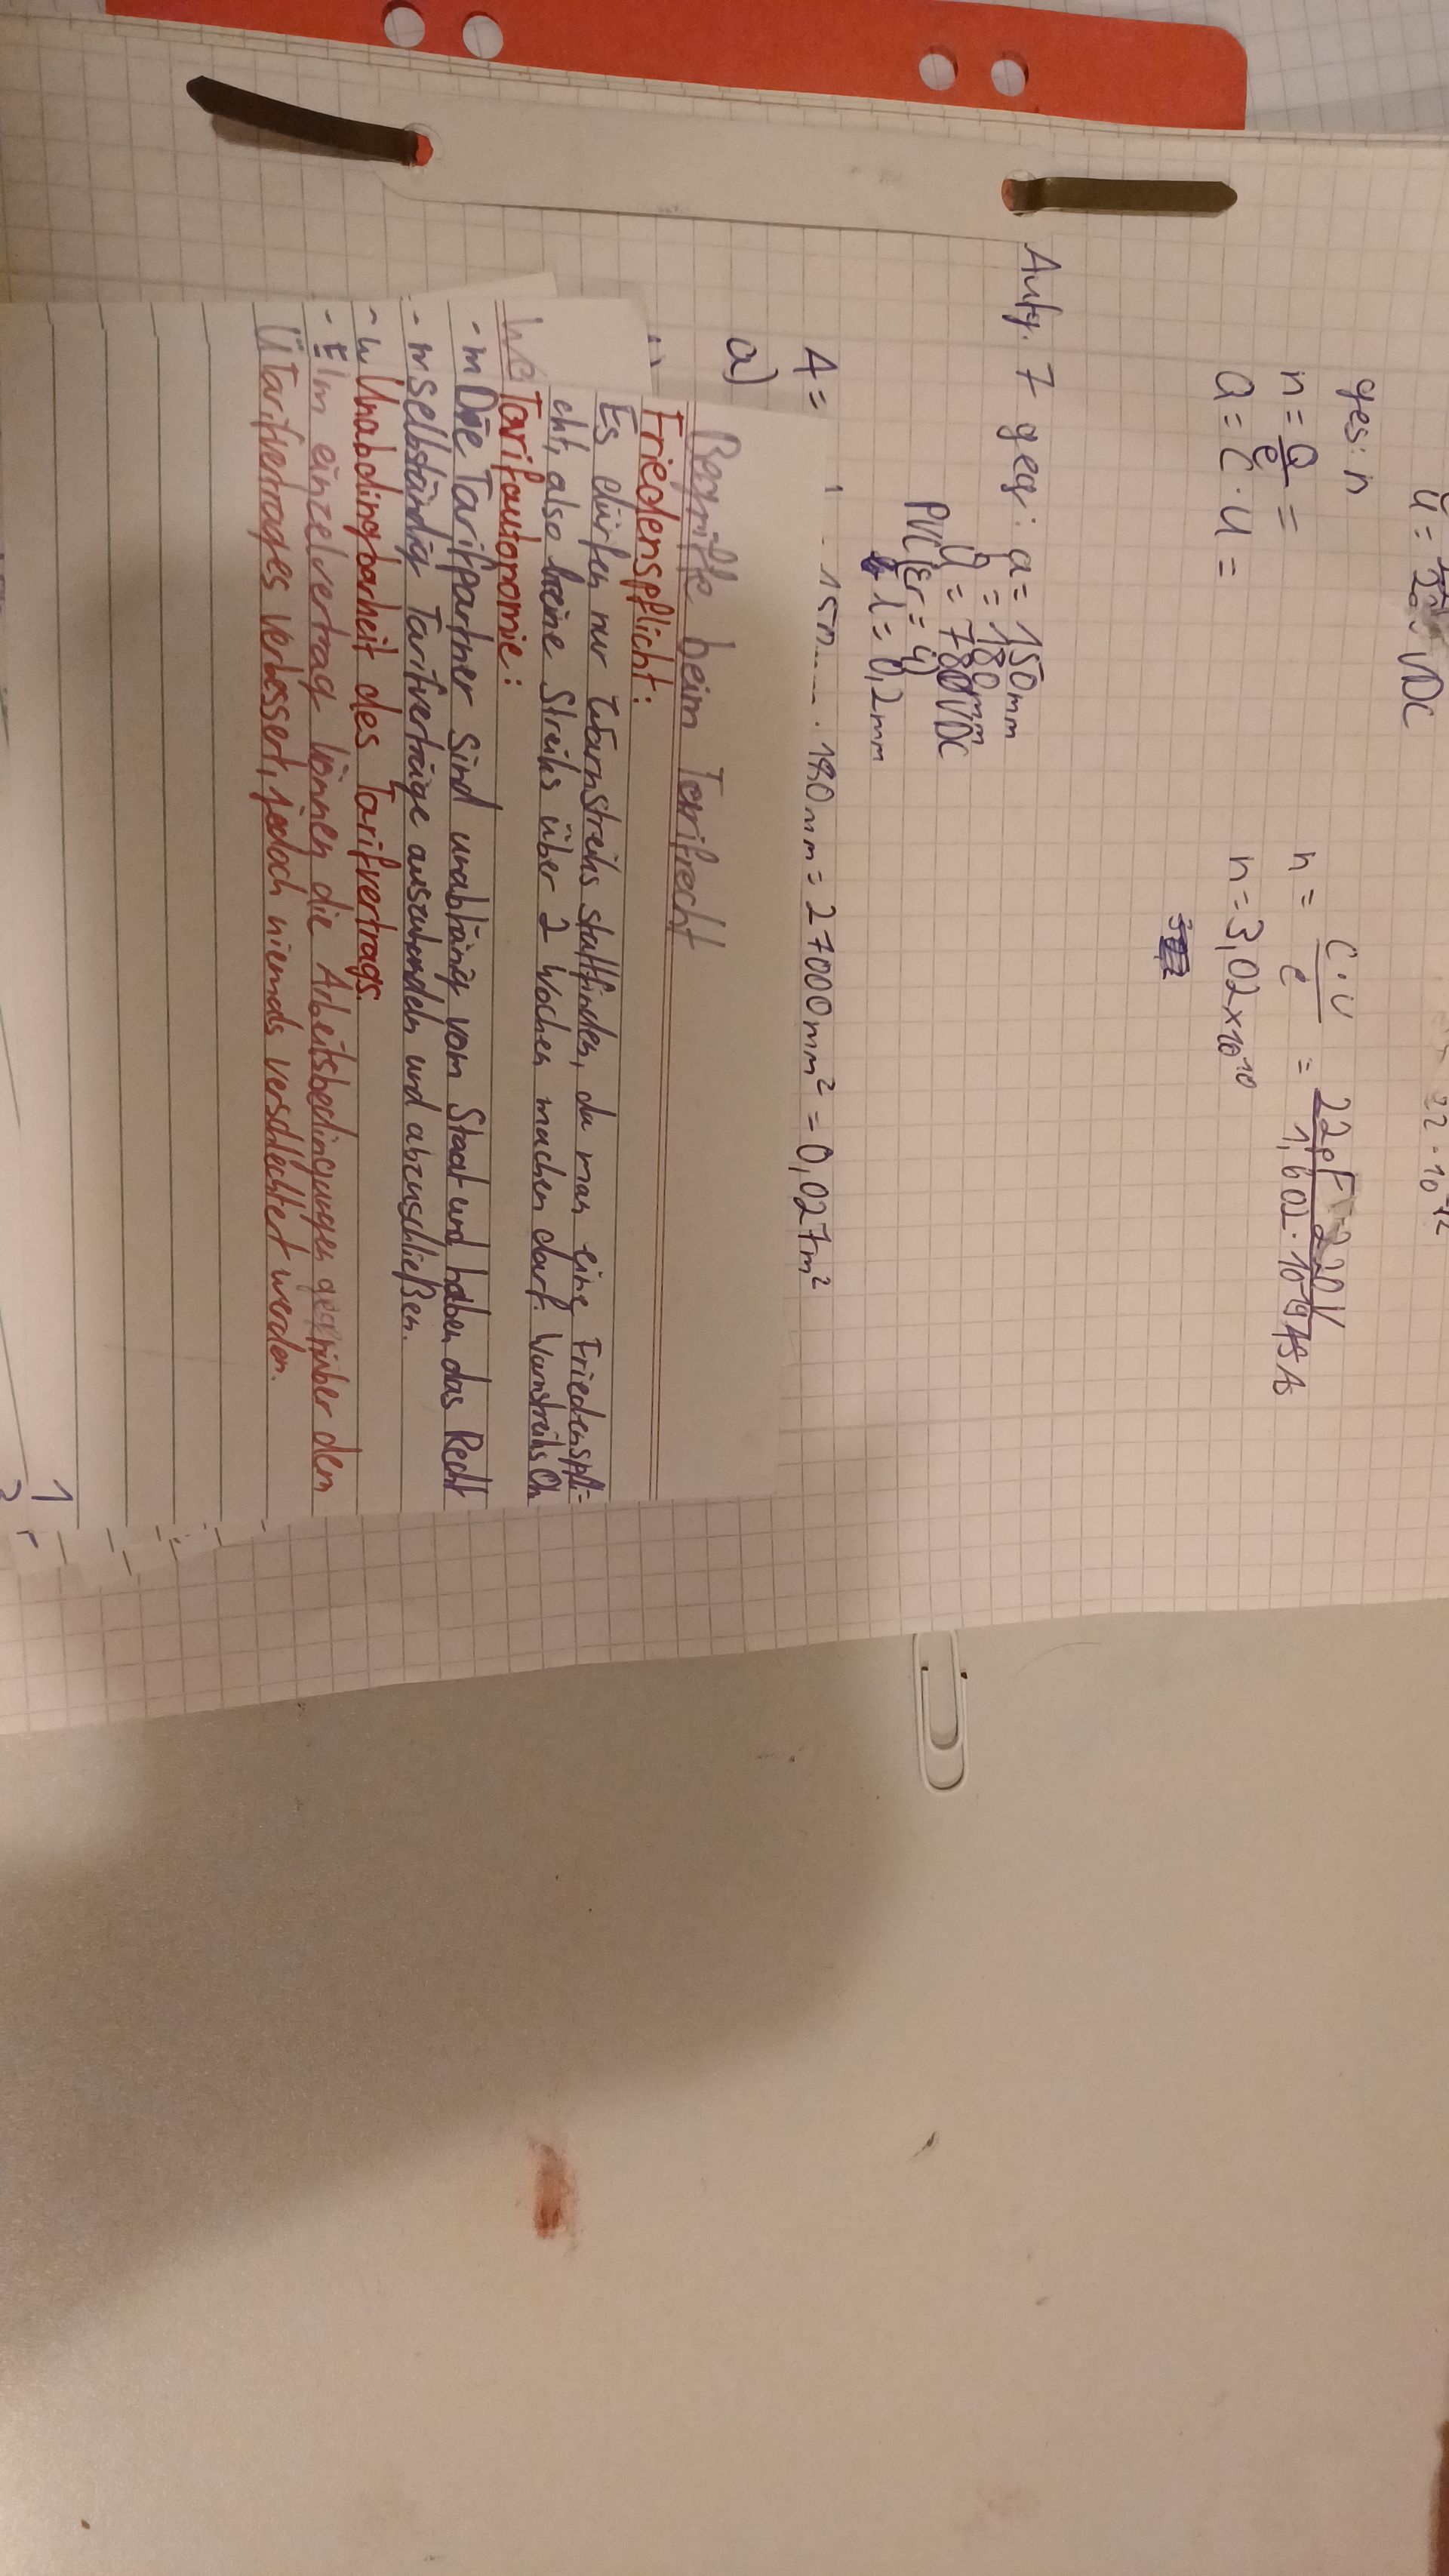 ges: n
n = Q/e =
Q = C · U =
n = C·U/e = 22pF · 220V / 1,602 · 10⁻¹⁹ As
n = 3,02×10¹⁰
Aufg. 7 geg: a = 150mm
b = 180mm
U = 780VDC
PVC (εr = 4)
l = 0,2mm
A = 180mm = 27000mm² = 0,027m²
a)
Begriffe beim Tarifrecht
Friedenspflicht:
Es dürfen nur Warnstreiks stattfinden, da man eine Friedenspfli-
cht, also keine Streiks über 2 Wochen machen darf. Warnstreiks Ok
Tarifautonomie:
Die Tarifpartner sind unabhänig vom Staat und haben das Recht
selbständig Tarifverträge auszuhandeln und abzuschließen.
Unabdingbarkeit des Tarifvertrags.
Im einzelvertrag können die Arbeitsbedingungen gegenüber dem
Tarifvertrages verbessert, jedoch niemals verschlechtert werden.